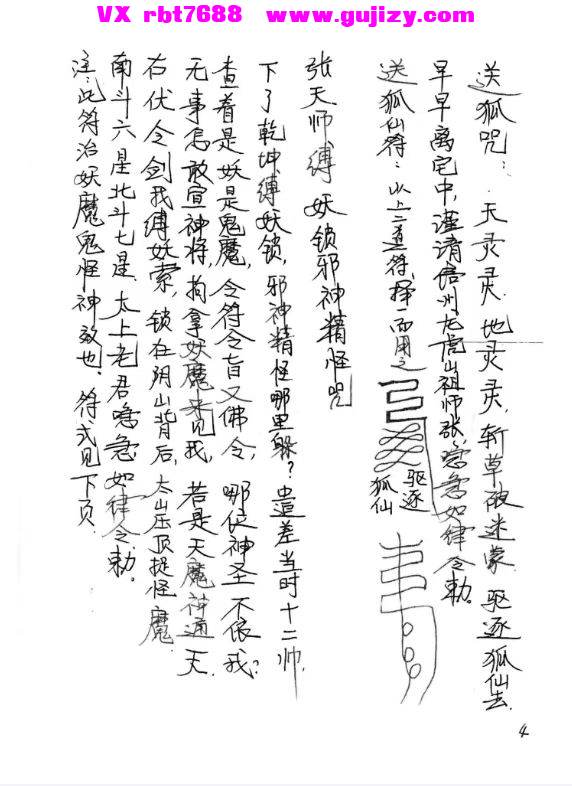 VX rbt7688 www.gujizy.com
送狐咒：天灵灵，地灵灵，斩草破迷蒙，驱逐狐仙去，
早早离宅中，谨请信州龙虎山祖师张，急急如律令勅。
送狐仙符：以上二道符，择一而用之
驱逐
狐仙
张天师缚妖锁邪神精怪咒
下了乾坤缚妖锁，邪神精怪哪里躲？遣差当时十二帅，
查看是妖是鬼魔，令符令旨又佛令，哪位神圣不依我？
无事怎敢宣神将，拘拿妖魔来见我，若是天魔神通天，
右伏令剑我缚妖索，锁在阴山背后，太山压顶捉怪魔，
南斗六星北斗七星，太上老君急急如律令勅。
注：此符治妖魔鬼怪神效也，符式见下页。
4